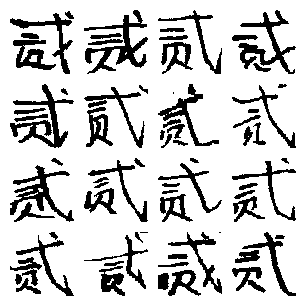 贰贰贰贰
贰贰贰贰
贰贰贰贰
贰贰贰贰